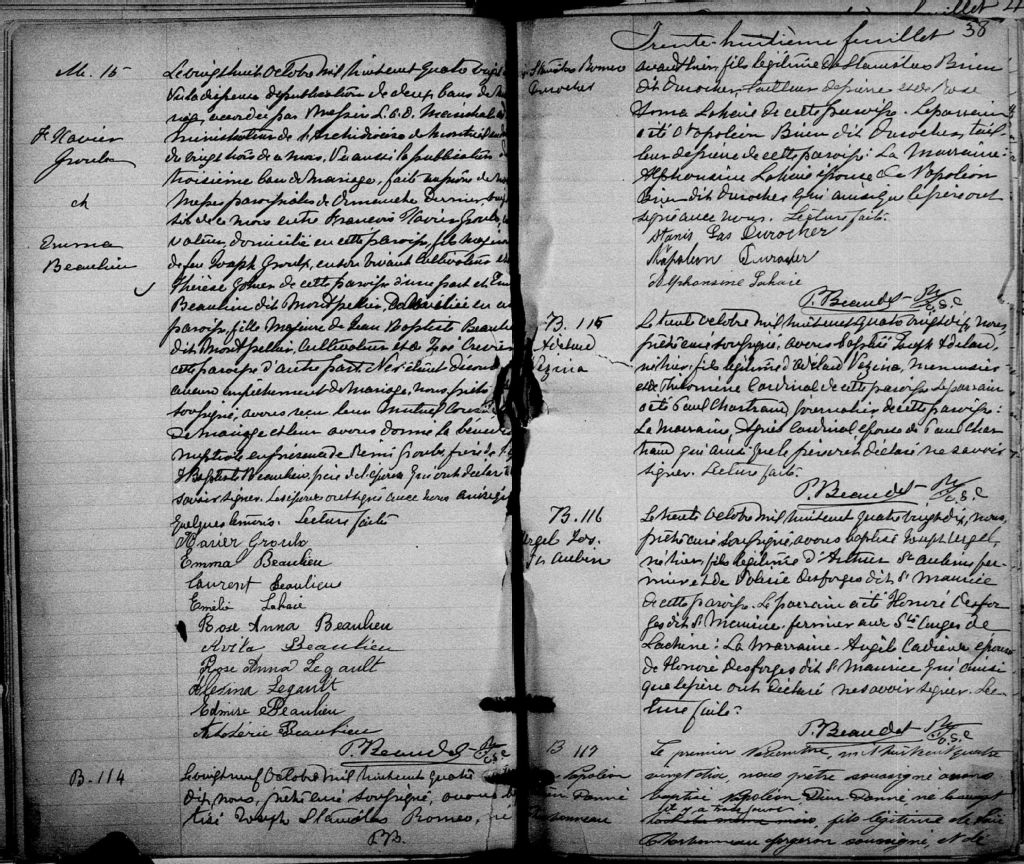 M. 15
F. Xavier
Groulx
et
Emma
Beaulieu
Le vingt huit Octobre mil huit cent quatre vingt
Vu la dispense de publication de deux bans de
accordée par Messire L. E. D. Maréchal
ministrateur de l'Archidiocèse de Montréal
du vingt trois de ce mois, Vu aussi la publication
troisième ban de mariage, fait au prône de
Messe paroissiale de Dimanche dernier
six de ce mois entre François Xavier Groulx
domicilié en cette paroisse, fils majeur
de feu Joseph Groulx, en son vivant cultivateur et
Thérèse de cette paroisse d'une part et
Beaulieu dit Montpellier, domiciliée en
paroisse, fille Majeure de Jean Baptiste
dit Montpellier, cultivateur et de
cette paroisse d'autre part. Ne s'étant découvert
aucun empêchement de mariage, nous prêtre
soussigné, avons reçu leur mutuel
de mariage et leur avons donné la
nuptiale en présence de Rémi Groulx, frère de
Baptiste Beaulieu, père de l'épouse qui ont déclaré
savoir signer. Les époux ont signé avec nous ainsi que
quelques témoins. Lecture faite
Xavier Groulx
Emma Beaulieu
Laurent Beaulieu
Emélie Lahaie
Rose Anna Beaulieu
Avila Beaulieu
Rose Anna Legault
Alexina Legault
Edmire Beaulieu
Beaulieu
P. Beaudet Ptr
C.S.C
B. 114
Le vingt neuf Octobre mil huit cent quatre
dix, nous, prêtre curé soussigné, avons
tisé Joseph Stanislas Romeo, né
P.B.
Trente-huitième feuillet 38
Stanislas Romeo
Durocher
avant hier, fils légitime de Stanislas Brien
dit Durocher, tailleur de pierre et de Rose
Anna Lahaie de cette paroisse. Le parrain
a été Napoléon Brien dit Durocher, tail-
leur de pierre de cette paroisse : La Marraine :
Alphonsine Lahaie épouse de Napoléon
Brien dit Durocher qui ainsi que le père ont
signé avec nous. Lecture faite.
Stanis Las Durocher
Napoleon Durocher
Alphonsine Lahaie
P. Beaudet Ptr
C.S.C
B. 115
Adelard
Vezina
Le trente Octobre mil huit cent quatre vingt dix, nous,
prêtre curé soussigné, avons baptisé Joseph Adelard,
né hier, fils légitime d'Adelard Vezina, Menuisier
et de Philomène Cardinal de cette paroisse. Le parrain
a été Paul Chartrand, journalier de cette paroisse :
La Marraine, Agnès Cardinal épouse de Paul Char-
trand qui ainsi que le père ont déclaré ne savoir
signer. Lecture faite.
P. Beaudet Ptr
C.S.C
B. 116
Argel Jos.
St Aubin
Le trente Octobre mil huit cent quatre vingt dix, nous,
prêtre curé soussigné, avons baptisé Joseph Argel,
né hier, fils légitime d'Arthur St Aubin fer-
mier et de Valérie Desforges dit St Maurice
de cette paroisse. Le parrain a été Honoré Desfor-
ges dit St Maurice, fermier aux Sts Anges de
Lachine : La Marraine Angèle Cadieux épouse
de Honoré Desforges dit St Maurice qui ainsi
que le père ont déclaré ne savoir signer. Lec-
ture faite.
P. Beaudet Ptr
C.S.C
B 117
Napoléon
Dieu Donné
Charbonneau
Le premier Novembre, mil huit cent quatre
vingt dix, nous prêtre soussigné avons
baptisé Napoléon Dieu Donné, né
il y a trois jours
fils légitime de
Charbonneau forgeron soussigné, et de